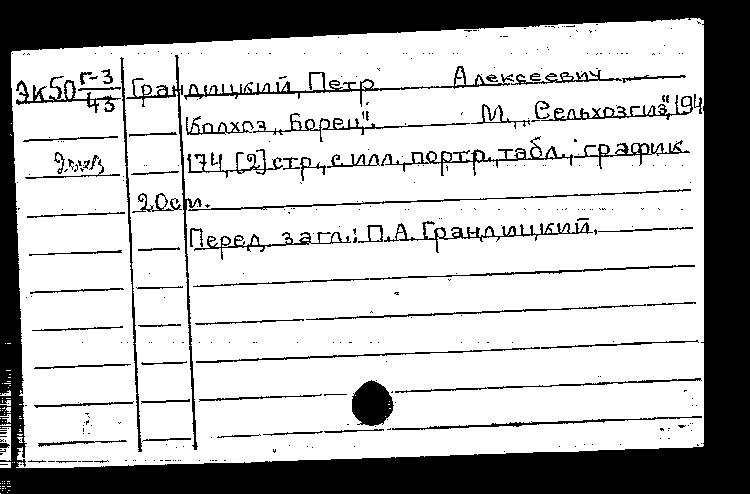 Эк50 Г-3/43 Грандицкий, Петр Алексеевич
Колхоз „Борец“. М., „Сельхозгиз“, 194
2 экз 174, [2] стр., с илл., портр. табл., график.
20см.
Перед загл.: П.А. Грандицкий.